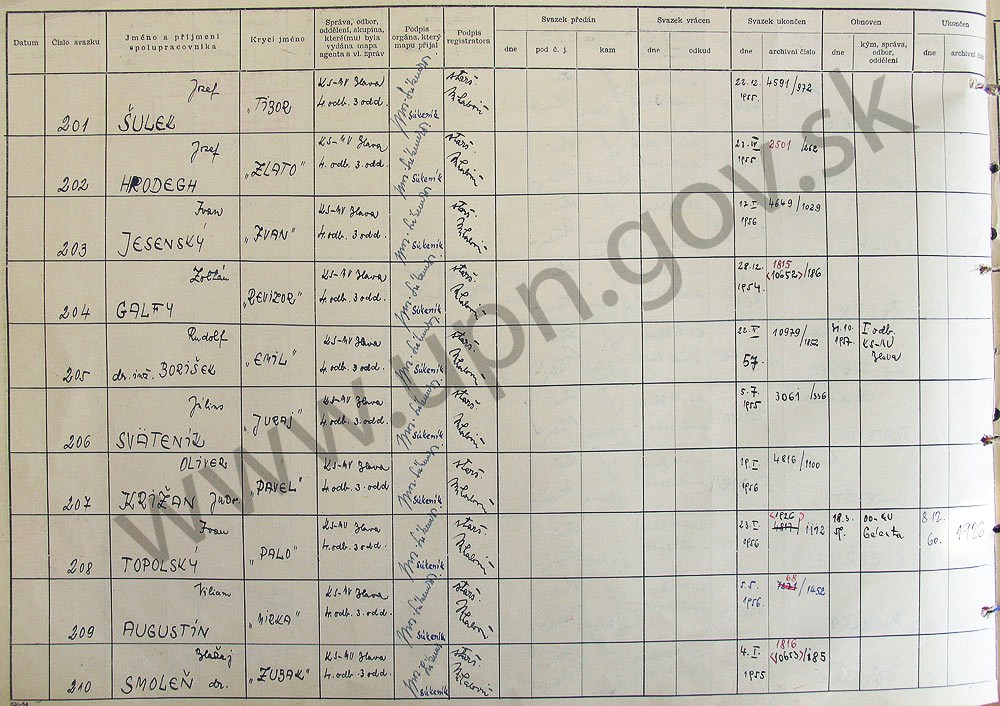 Datum
Číslo svazku
Jméno a příjmení spolupracovníka
Krycí jméno
Správa, odbor, oddělení, skupina, které(mu) byla vydána mapa agenta a vl. zpráv
Podpis orgána, který mapu přijal
Podpis registratora
Svazek předán
dne
pod č. j.
kam
Svazek vrácen
dne
odkud
Svazek ukončen
dne
archivní číslo
Obnoven
dne
kým, správa, odbor, oddělení
Ukončen
dne
archivní čís
201 Jozef ŠULEK "TIBOR" KS-MV Blava 4. odb. 3 odd. Súkeník 22.12. 1955. 4591/972
202 Jozef HRODEGH "ZLATO" KS-MV Blava 4. odb. 3. odd. Súkeník 1955 2501
203 Ivan JESENSKÝ "IVAN" KS-MV Blava 4. odb. 3. odd. Súkeník 1956 4649/1029
204 Zoltán GALFY "REVIZOR" KS-MV Blava 4. odb. 3. odd. Súkeník 28.12. 1954. 1815 (10652)/186
205 Rudolf dr. inž. BORIŠEK "EMIL" KS-MV Blava 4. odb. 3. odd. Súkeník 22. IV 57. 10979/1852 1957. I odb. KS-MV Blava
206 Július SVÄTENÍK "JURAJ" KS-MV Blava 4. odb. 3. odd. Súkeník 5.7. 1955 3061/336
207 OLIVER KRIŽAN JuDr. "PAVEL" KS-MV Blava 4. odb. 3. odd Súkeník 19. I 1956 4816/1100
208 Ivan TOPOLSKÝ "PALO" KS-MV Blava 4. odb. 3. odd. Súkeník 23. I. 1956 (1926) 4817/1112 18.3. 59. OO-MV Galanta 8.12. 60. 1926
209 Kilian AUGUSTÍN "MIRKA" KS-MV Blava 4. odb. 3. odd. Súkeník 5.5. 1956. 68 /1452
210 Blažej SMOLEŇ dr. "ZUBAK" KS-MV Blava 4. odb. 3 odd. Súkeník 4. I. 1955 1816 (10653)/185
www.upn.gov.sk